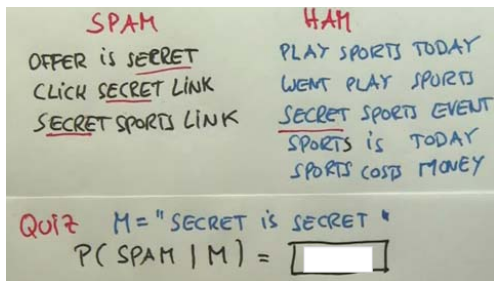 SPAM
OFFER is SECRET
CLICK SECRET LINK
SECRET SPORTS LINK
HAM
PLAY SPORTS TODAY
WENT PLAY SPORTS
SECRET SPORTS EVENT
SPORTS is TODAY
SPORTS COSTS MONEY
QUIZ M = "SECRET is SECRET"
P( SPAM | M ) =